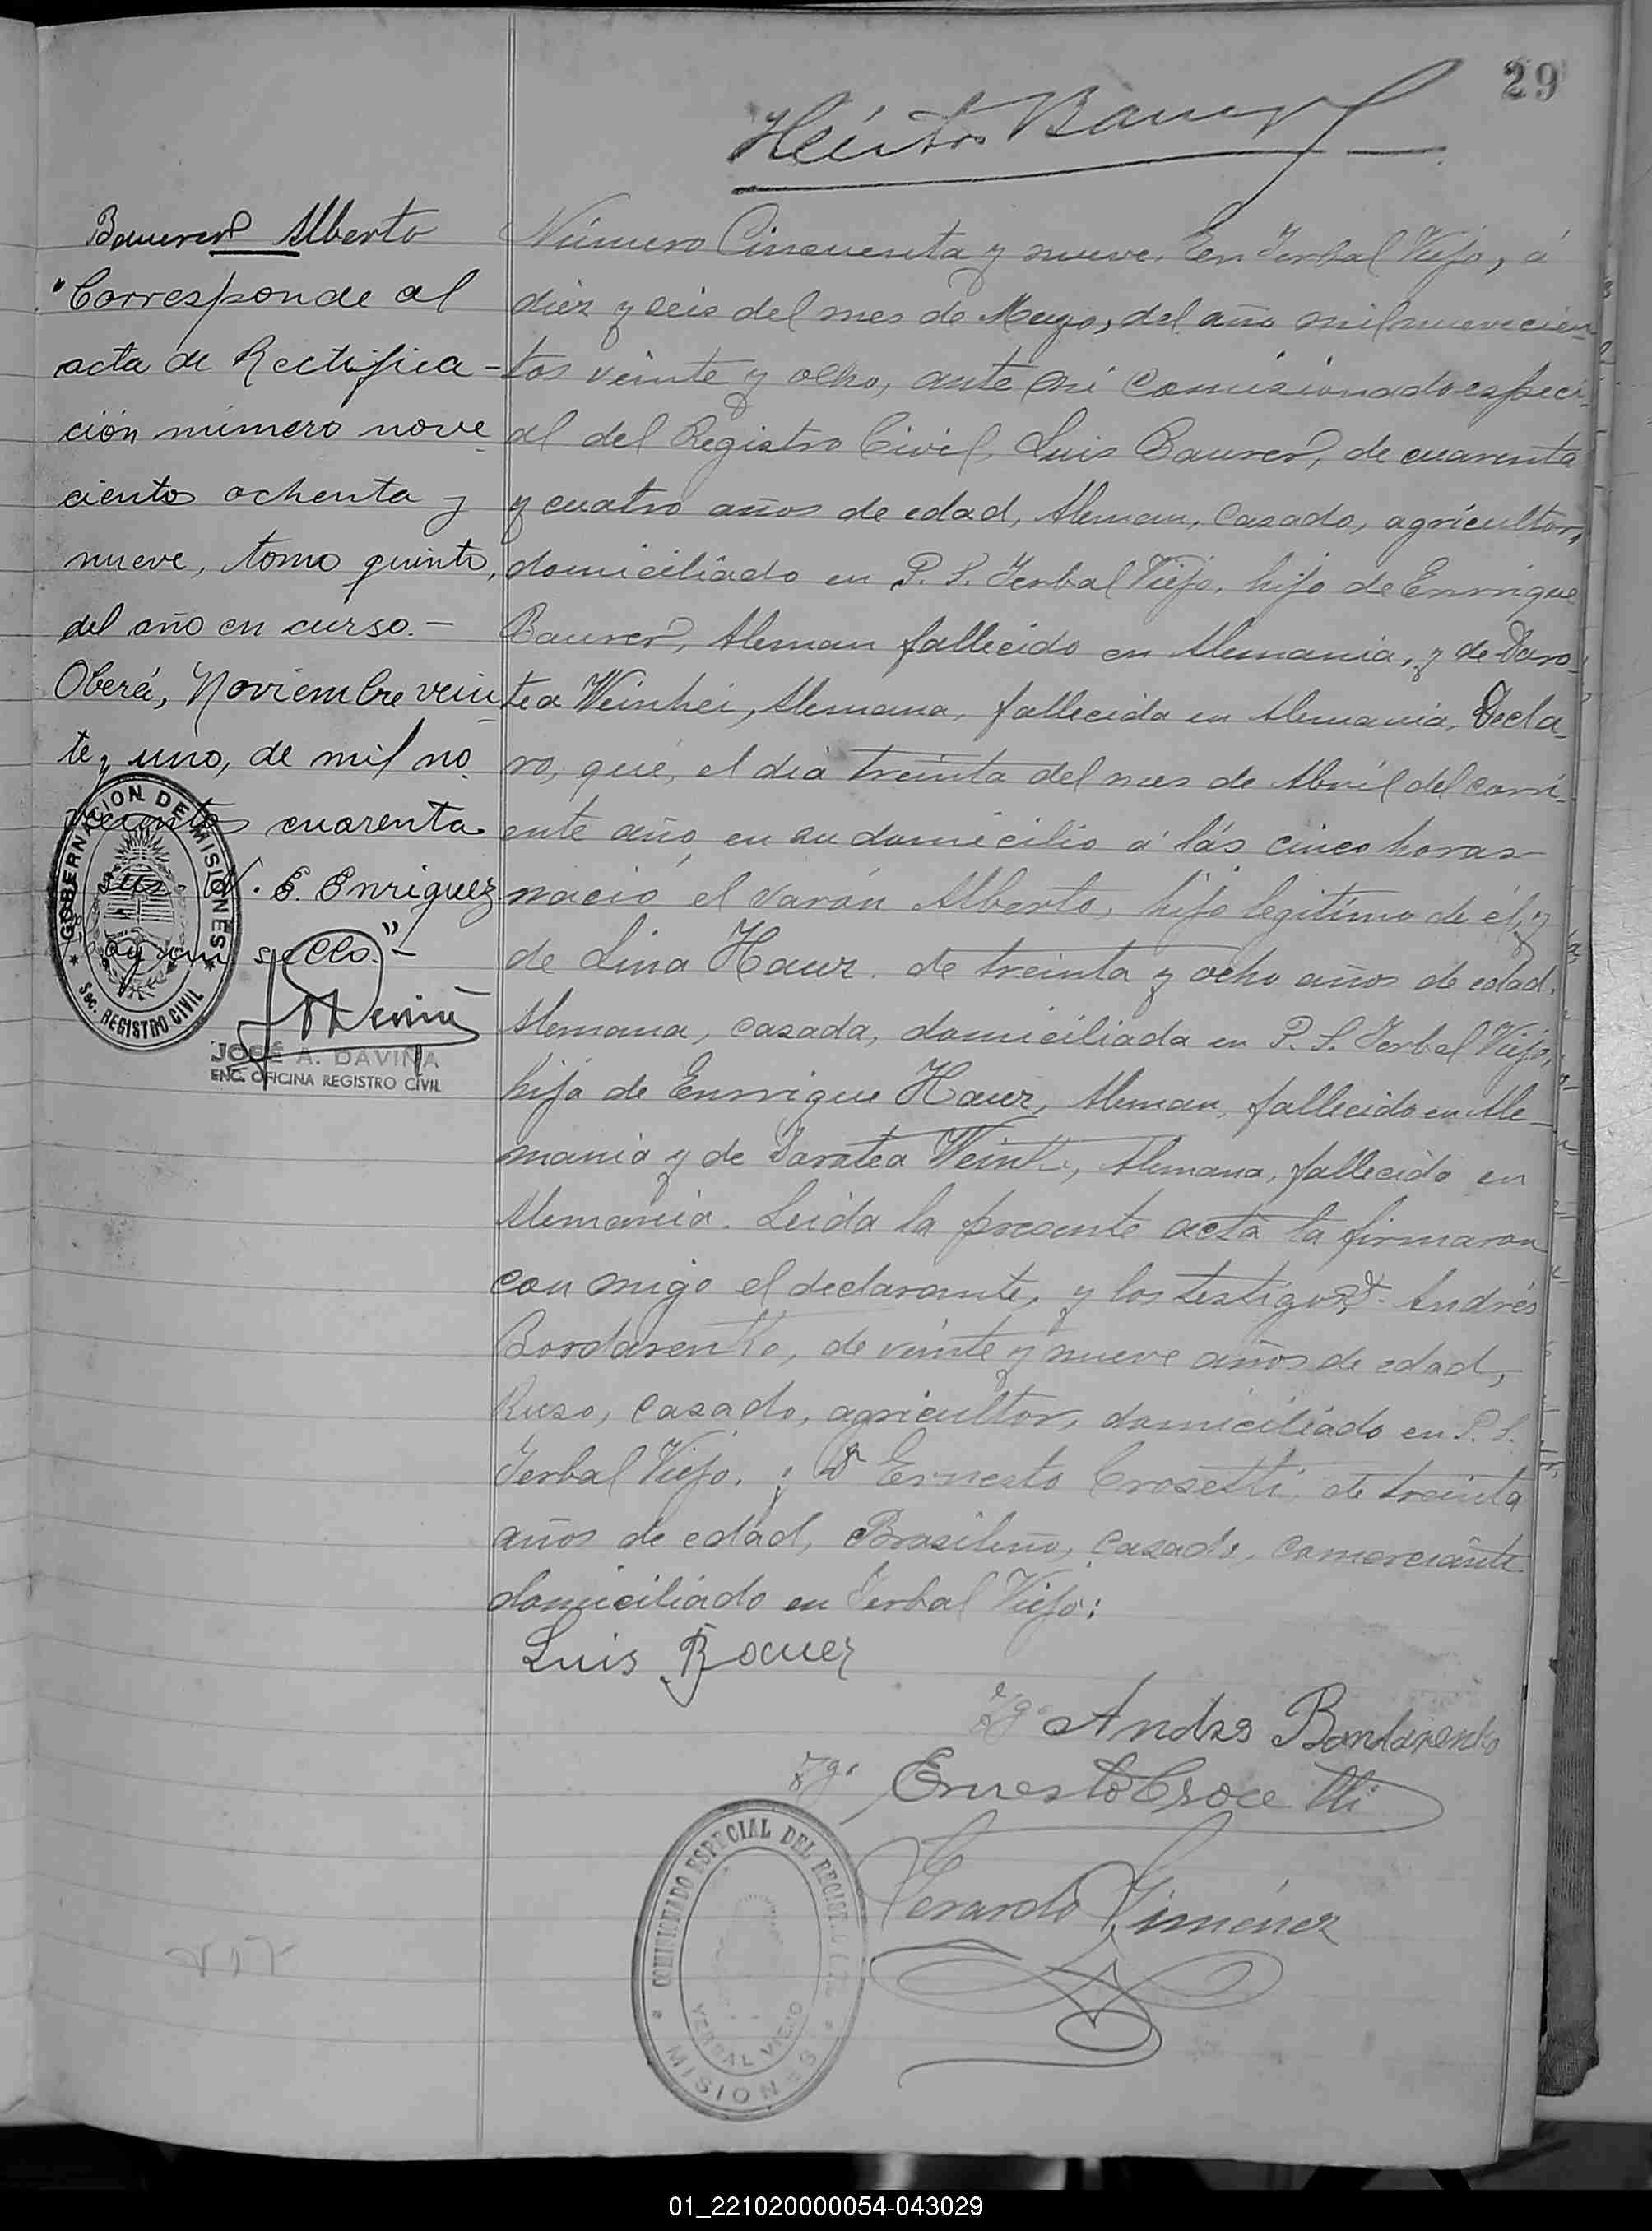 29
Héctor Bauer
Baurer Alberto
"Corresponde al
acta de Rectifica-
ción número nove
cientos ochenta y
nueve, tomo quinto,
del año en curso.-
Oberá, Noviembre vein
te y uno, de mil no
vecientos cuarenta
V. E. Enriquez
Hay un sello."-
GOBERNACION DE MISIONES
Sec. REGISTRO CIVIL
JOSÉ A. DAVIÑA
ENC. OFICINA REGISTRO CIVIL
Número Cincuenta y nueve. En Yerbal Viejo, á
diez y seis del mes de Mayo, del año mil novecien
tos veinte y ocho, ante mi Comisionado especi
al del Registro Civil, Luis Baurer, de cuarenta
y cuatro años de edad, Aleman, Casado, agricultor,
domiciliado en P. S. Yerbal Viejo, hijo de Enrrique
Baurer, Aleman fallecido en Alemania, y de Doro
tea Weinhei, Alemana, fallecida en Alemania. Decla
ro, que, el dia treinta del mes de Abril del corri-
ente año, en su domicilio á las cinco horas
nació el varón Alberto, hijo legitimo de él, y
de Lina Haur. de treinta y ocho años de edad.
Alemana, casada, domiciliada en P. S. Yerbal Viejo,
hija de Enrrique Hauer, Aleman, fallecido en Ale-
mania y de Doratea, Alemana, fallecida en
Alemania. Leida la presente acta la firmaron
con migo el declarante, y los testigos, Dn. Andrés
Bordarenko, de veinte y nueve años de edad,
Ruso, Casado, agricultor, domiciliado en P. S.
Yerbal Viejo. y Dn Ernesto Crosetti, de treinta
años de edad, Brasileño, Casado, Comerciante
domiciliado en Yerbal Viejo:
Luis Bauer
Tgo Andres Bondarenko
Tgo Ernesto Crocetti
Gerardo Giménez
COMISIONADO ESPECIAL DEL REGISTRO CIVIL
YERBAL VIEJO
MISIONES
01_221020000054-043029